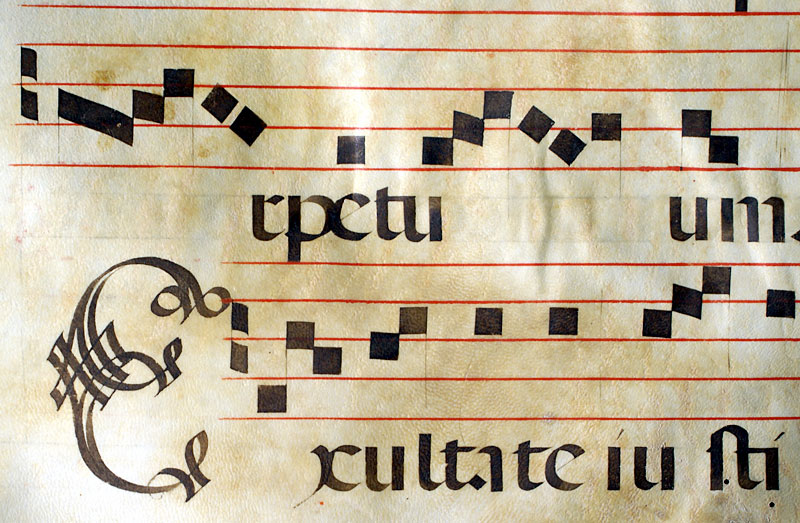 rpetu um.
Exultate iu sti